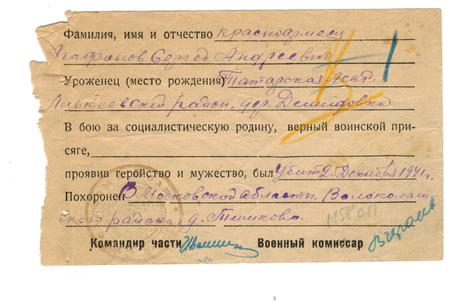 Фамилия, имя и отчество красноармеец
Агафонов Сергей Андреевич
Уроженец (место рождения) Татарская АССР.
Алькеевский район, дер. Демидовка
В бою за социалистическую родину, верный воинской при-
сяге,
проявив геройство и мужество, был убит 25 декабря 1941 г.
Похоронен В Московской области. Волоколам-
ского района д. Тимково.
1158 СП
Командир части Военный комиссар